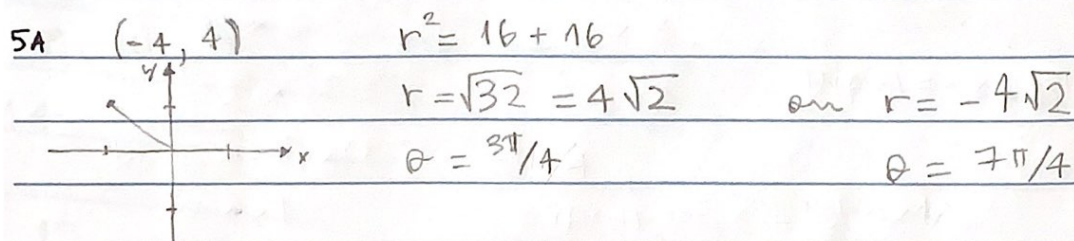 5A (-4, 4) r² = 16 + 16
y
r = √32 = 4√2 ou r = -4√2
x
θ = 3π/4 θ = 7π/4